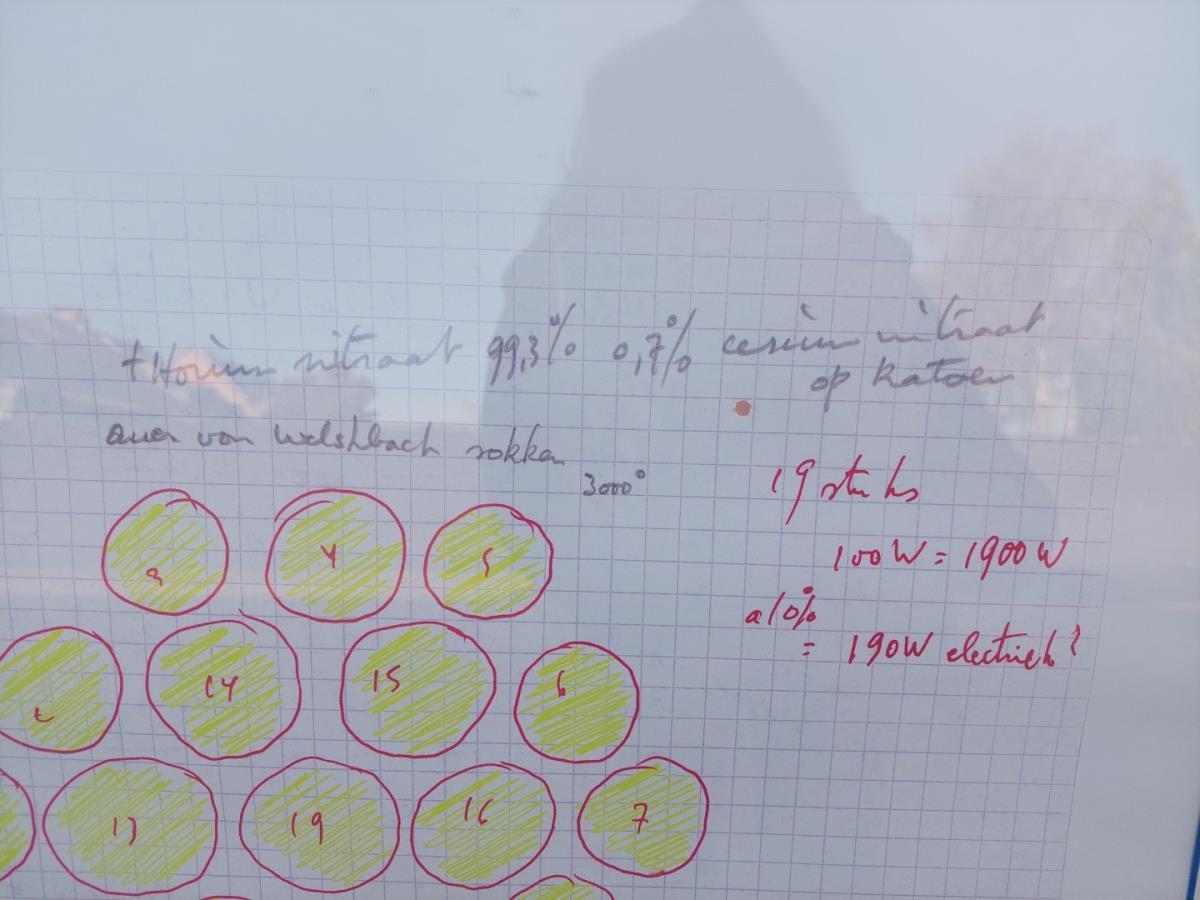 thorium nitraat 99,3% 0,7% cerium nitraat
op katoen
auer von Welshbach sokken
3000°
19 stuks
100W = 1900W
a 10%
= 190W electrisch?
3 4 5
14 15 6
13 19 16 7